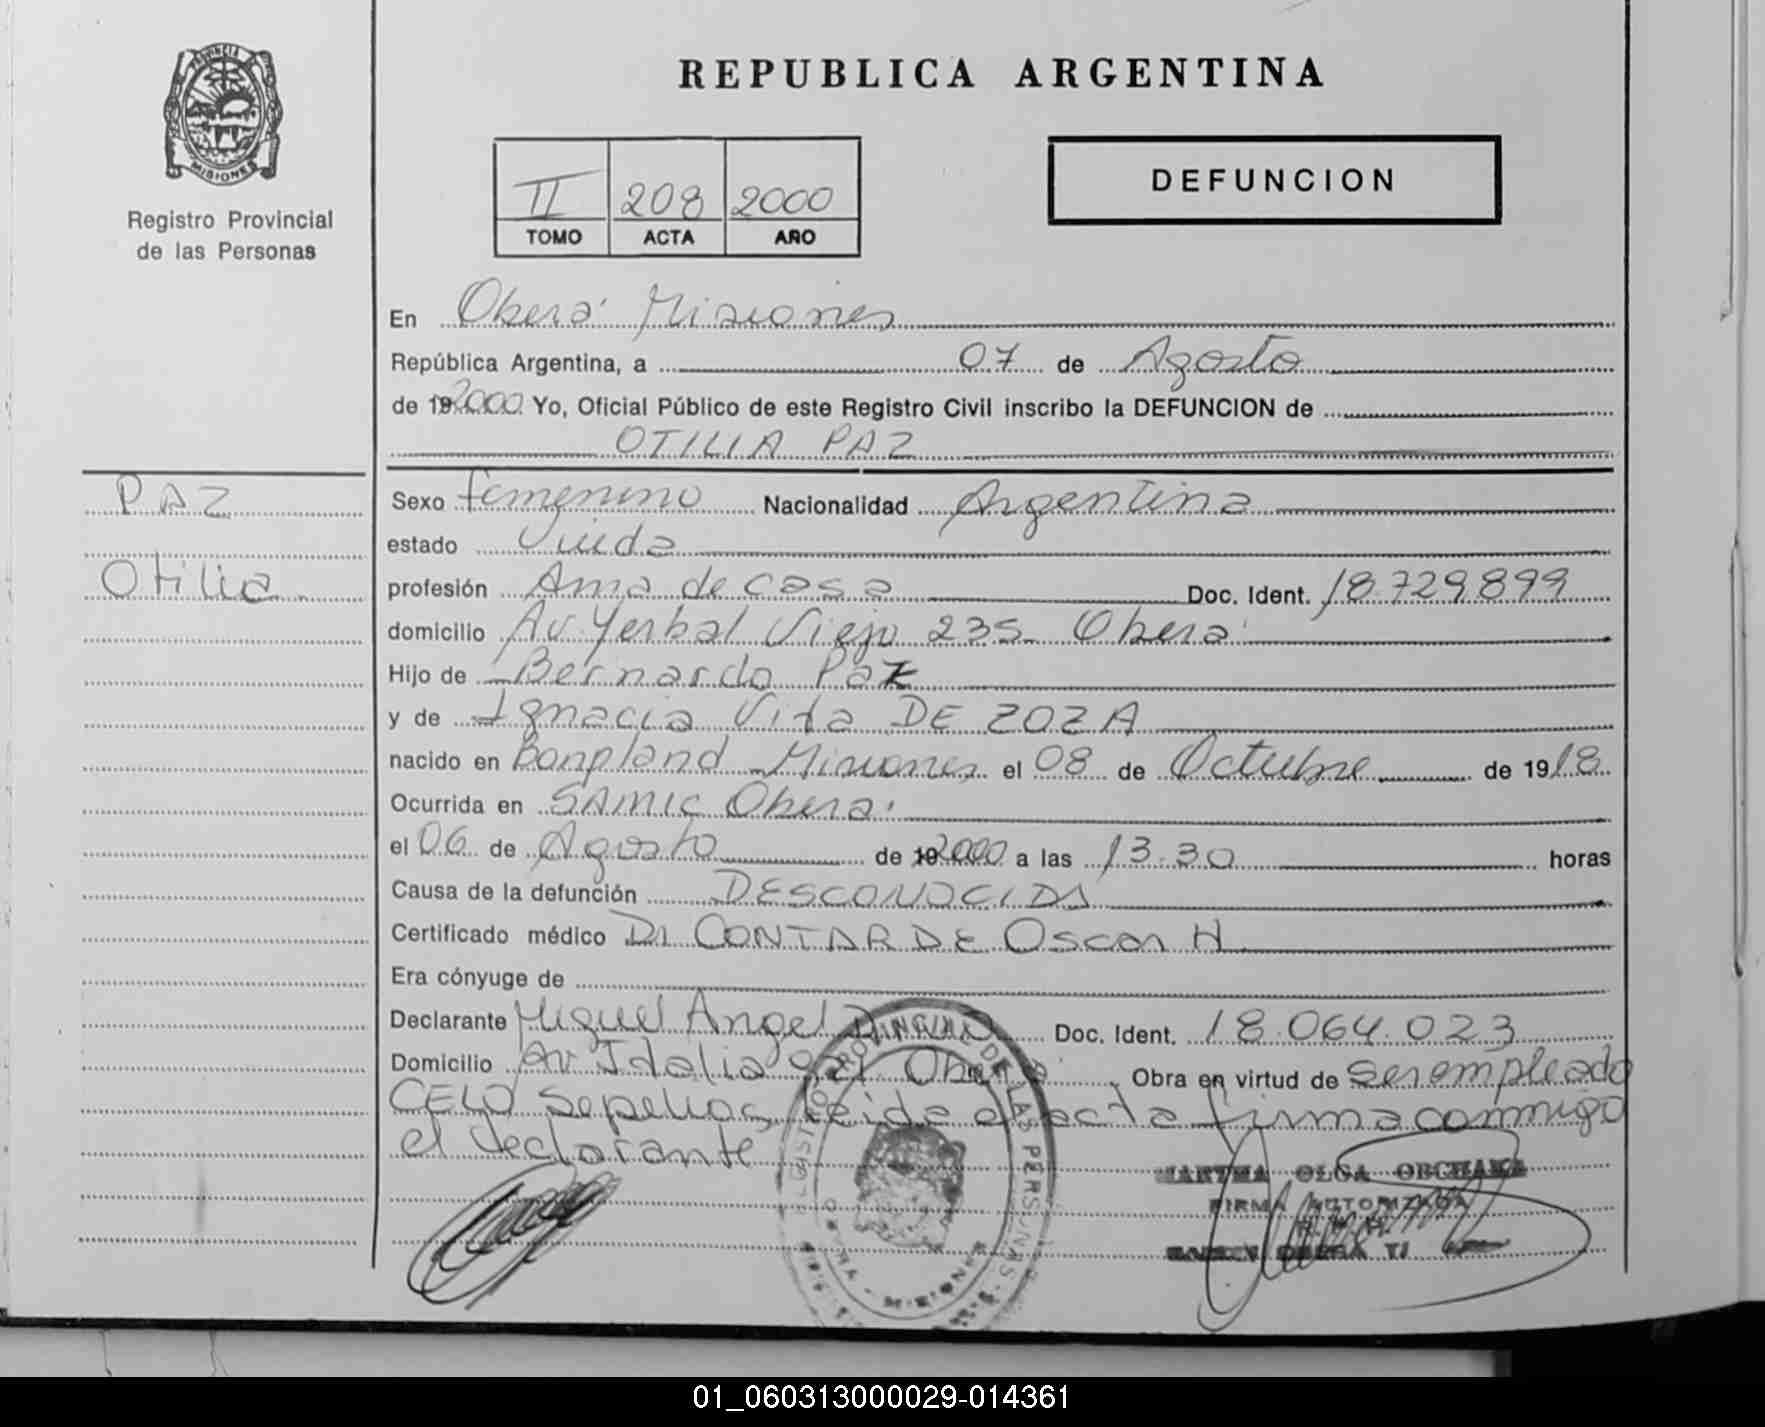 PROVINCIA
MISIONES
Registro Provincial
de las Personas
REPUBLICA ARGENTINA
II 208 2000
TOMO ACTA AÑO
DEFUNCION
En Oberá Misiones
República Argentina, a 07 de Agosto
de 192000 Yo, Oficial Público de este Registro Civil inscribo la DEFUNCION de
OTILIA PAZ
PAZ
Otilia
Sexo femenino Nacionalidad Argentina
estado Viuda
profesión Ama de casa Doc. Ident. 18.729.899
domicilio Av. Yerbal Viejo 235 Oberá
Hijo de Bernardo Paz
y de Ignacia Vita DE ZOZA
nacido en Bonpland Misiones el 08 de Octubre de 1918
Ocurrida en SAMIC Oberá
el 06 de Agosto de 192000 a las 13.30 horas
Causa de la defunción DESCONOCIDA
Certificado médico Dr CONTARDE Oscar H
Era cónyuge de
Declarante Miguel Angel Doc. Ident. 18.064.023
Domicilio Av Italia Oberá Obra en virtud de ser empleado
CELO Sepelios, leida el acta firma conmigo
el declarante
REGISTRO PROVINCIAL DE LAS PERSONAS
OBERA - MISIONES
MARTHA OLGA
FIRMA AUTORIZADA
01_060313000029-014361